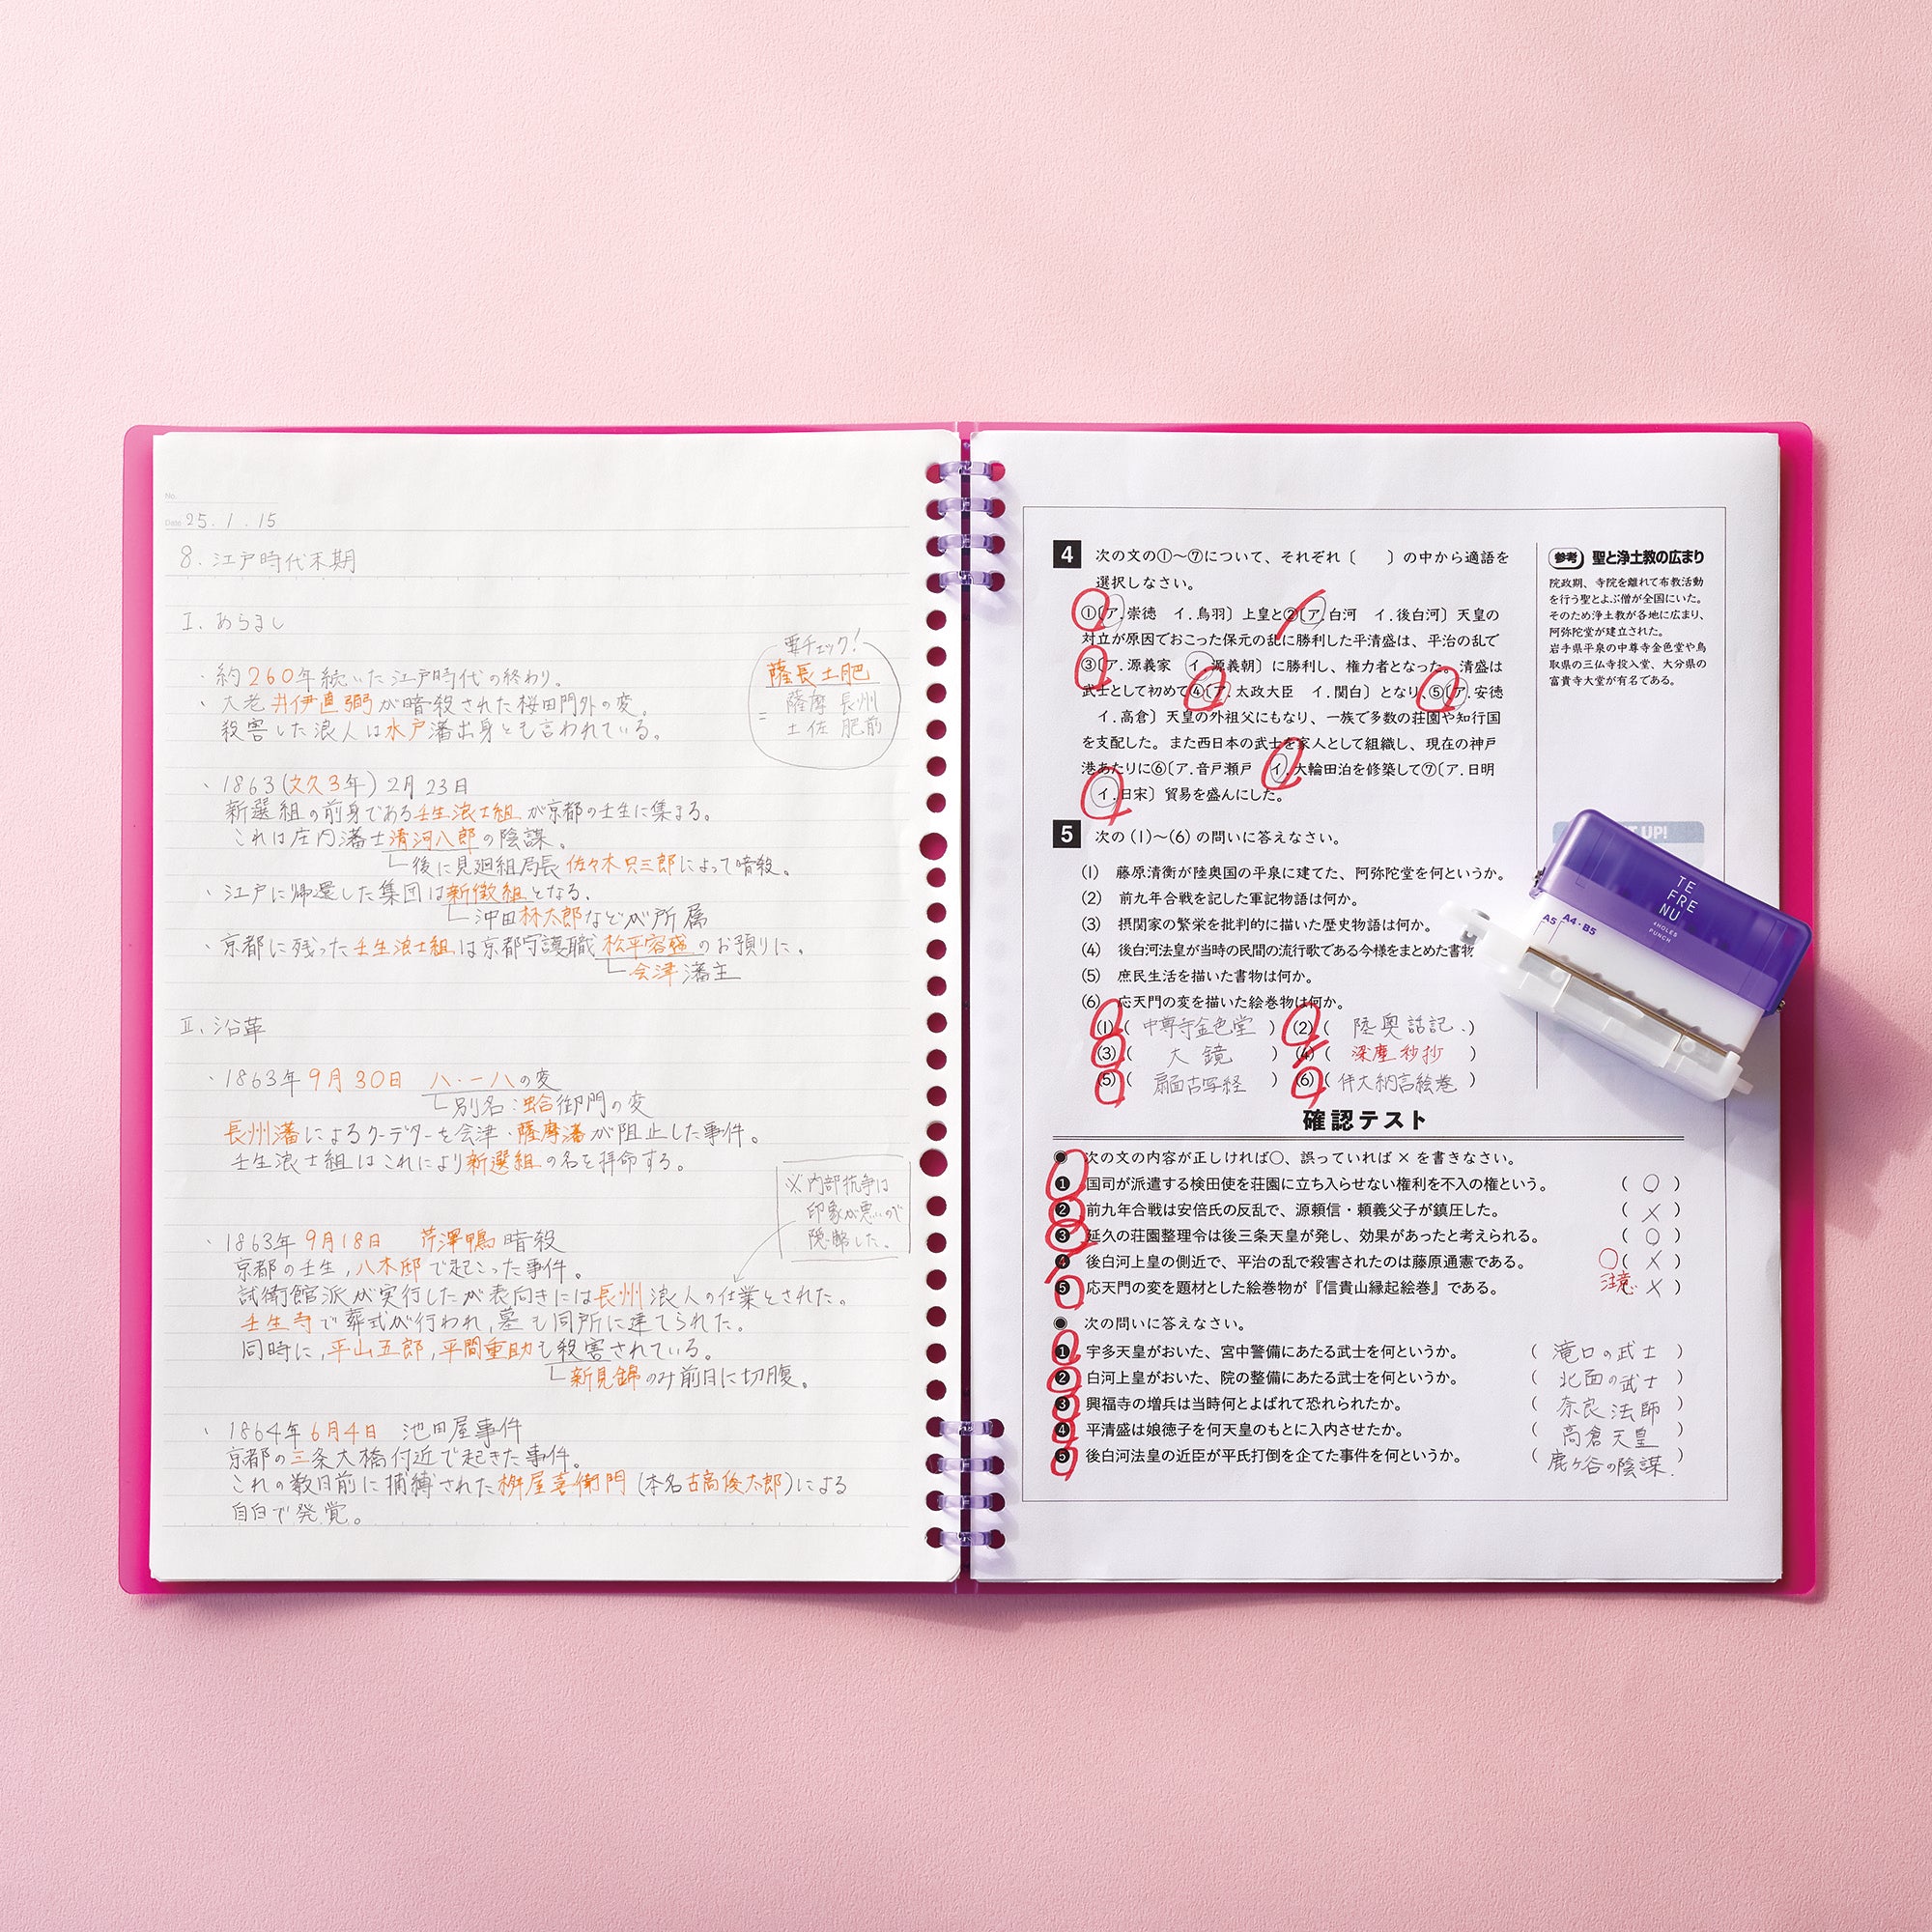 No.
Date 25.1.15
8. 江戸時代末期
I. あらまし
・約260年続いた江戸時代の終わり。
・大老 井伊直弼が暗殺された桜田門外の変。
殺害した浪人は水戸藩出身とも言われている。
要チェック!
薩長土肥
= 薩摩 長州
土佐 肥前
・1863(文久3年) 2月23日
新選組の前身である壬生浪士組が京都の壬生に集まる。
これは庄内藩士清河八郎の陰謀。
後に見廻組局長 佐々木只三郎によって暗殺。
・江戸に帰還した集団は新徴組となる。
沖田林太郎などが所属
・京都に残った壬生浪士組は京都守護職 松平容盛のお預りに。
会津藩主
II. 沿革
・1863年9月30日 八・一八の変
別名:蛤御門の変
長州藩によるクーデターを会津・薩摩藩が阻止した事件。
壬生浪士組はこれにより新選組の名を拝命する。
※内部抗争は
印象が悪いので
隠蔽した。
・1863年9月18日 芹澤鴨 暗殺
京都の壬生,八木邸で起こった事件。
試衛館派が実行したが表向きには長州浪人の仕業とされた。
壬生寺で葬式が行われ,墓も同所に建てられた。
同時に,平山五郎,平間重助も殺害されている。
新見錦のみ前日に切腹。
・1864年6月4日 池田屋事件
京都の三条大橋付近で起きた事件。
これの数日前に捕縛された桝屋喜衛門(本名古高俊太郎)による
自白で発覚。
4 次の文の①～⑦について、それぞれ〔 〕の中から適語を
選択しなさい。
①〔ア.崇徳 イ.鳥羽〕上皇と②〔ア.白河 イ.後白河〕天皇の
対立が原因でおこった保元の乱に勝利した平清盛は、平治の乱で
③〔ア.源義家 イ.源義朝〕に勝利し、権力者となった。清盛は
武士として初めて④〔ア.太政大臣 イ.関白〕となり、⑤〔ア.安徳
イ.高倉〕天皇の外祖父にもなり、一族で多数の荘園や知行国
を支配した。また西日本の武士を家人として組織し、現在の神戸
港あたりに⑥〔ア.音戸瀬戸 イ.大輪田泊を修築して⑦〔ア.日明
イ.日宋〕貿易を盛んにした。
参考 聖と浄土教の広まり
院政期、寺院を離れて布教活動
を行う聖とよぶ僧が全国にいた。
そのため浄土教が各地に広まり、
阿弥陀堂が建立された。
岩手県平泉の中尊寺金色堂や鳥
取県の三仏寺投入堂、大分県の
富貴寺大堂が有名である。
UP!
5 次の(1)～(6)の問いに答えなさい。
(1) 藤原清衡が陸奥国の平泉に建てた、阿弥陀堂を何というか。
(2) 前九年合戦を記した軍記物語は何か。
(3) 摂関家の繁栄を批判的に描いた歴史物語は何か。
(4) 後白河法皇が当時の民間の流行歌である今様をまとめた書物
(5) 庶民生活を描いた書物は何か。
(6) 応天門の変を描いた絵巻物は何か。
(1)( 中尊寺金色堂 ) (2)( 陸奥話記. )
(3)( 大鏡 ) (4)( 梁塵秒抄 )
(5)( 扇面古写経 ) (6)( 伴大納言絵巻 )
TE
FRE
NU
4HOLES
PUNCH
A5 A4・B5
確認テスト
● 次の文の内容が正しければ○、誤っていれば×を書きなさい。
❶ 国司が派遣する検田使を荘園に立ち入らせない権利を不入の権という。 ( ○ )
❷ 前九年合戦は安倍氏の反乱で、源頼信・頼義父子が鎮圧した。 ( × )
❸ 延久の荘園整理令は後三条天皇が発し、効果があったと考えられる。 ( ○ )
❹ 後白河上皇の側近で、平治の乱で殺害されたのは藤原通憲である。 ○( × )
❺ 応天門の変を題材とした絵巻物が『信貴山縁起絵巻』である。 注意 × )
● 次の問いに答えなさい。
❶ 宇多天皇がおいた、宮中警備にあたる武士を何というか。 ( 滝口の武士 )
❷ 白河上皇がおいた、院の警備にあたる武士を何というか。 ( 北面の武士 )
❸ 興福寺の増兵は当時何とよばれて恐れられたか。 ( 奈良法師 )
❹ 平清盛は娘徳子を何天皇のもとに入内させたか。 ( 高倉天皇 )
❺ 後白河法皇の近臣が平氏打倒を企てた事件を何というか。 ( 鹿ヶ谷の陰謀. )